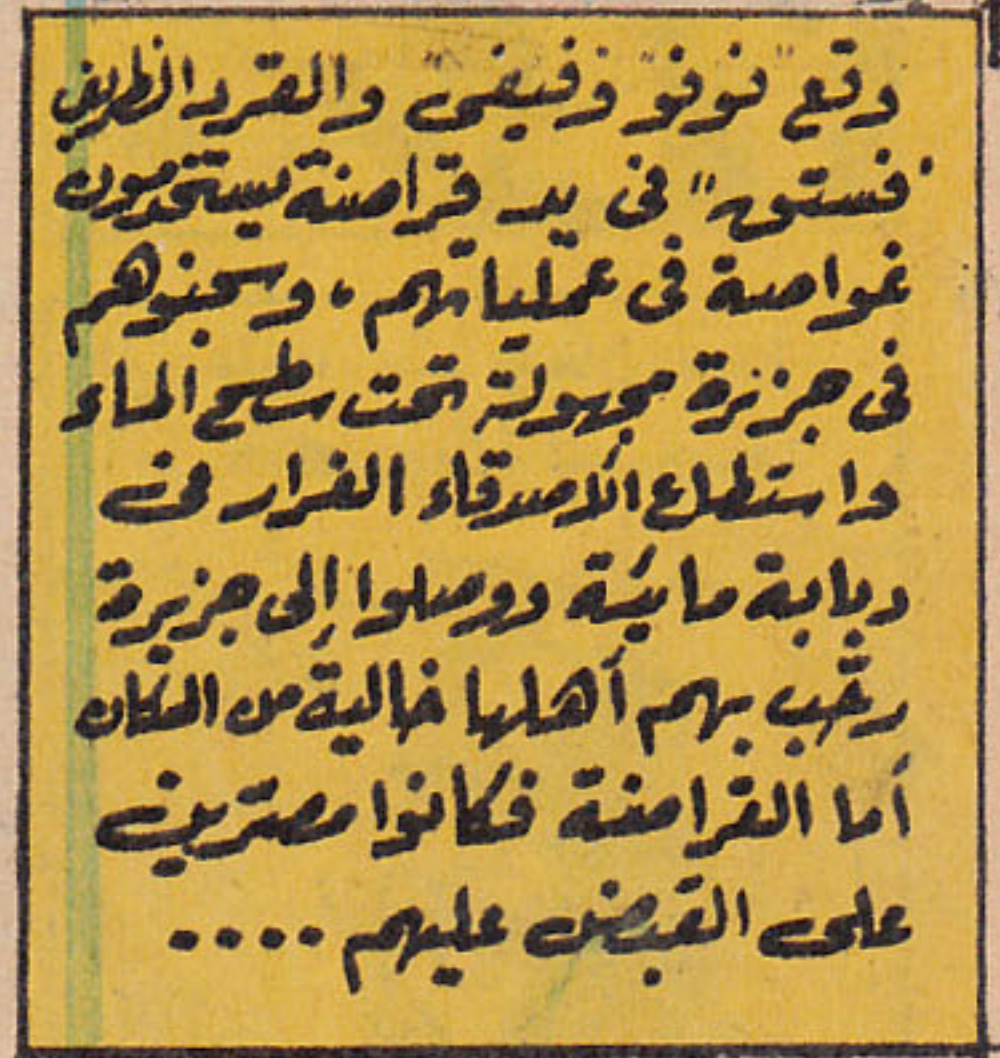 وقع "نوفو" و"فيفى" والقرد الظريف
"فستق" فى يد قراصنة يستخدمون
غواصة فى عملياتهم، وسجنوهم
فى جزيرة مجهولة تحت سطح الماء
واستطاع الأصدقاء الفرار فى
دبابة مائية ووصلوا إلى جزيرة
رحّب بهم أهلها خالية من السكان
أما القراصنة فكانوا مصرّين
على القبض عليهم ....